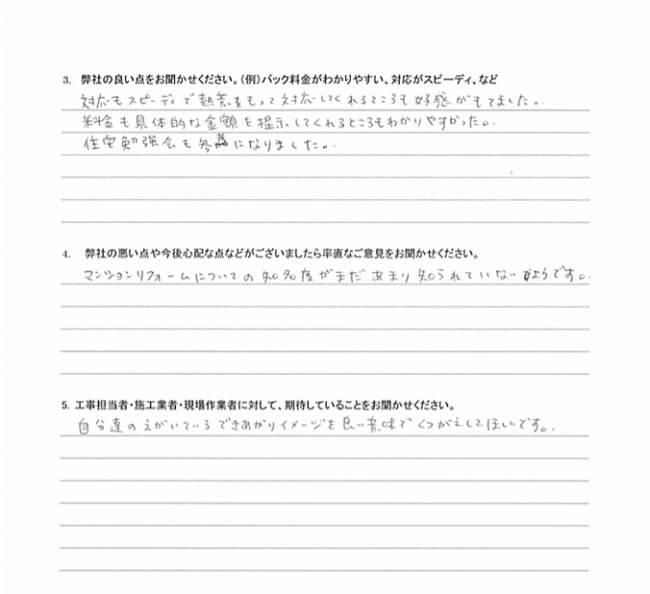 3. 弊社の良い点をお聞かせください。(例)パック料金がわかりやすい、対応がスピーディ、など
対応もスピーディで熱意をもって対応してくれるところも好感がもてました。
料金も具体的な金額を提示してくれるところもわかりやすかった。
住宅勉強会も参考になりました。
4. 弊社の悪い点や今後心配な点などがございましたら率直なご意見をお聞かせください。
マンションリフォームについての知名度がまだあまり知られていないようです。
5. 工事担当者・施工業者・現場作業者に対して、期待していることをお聞かせください。
自分達のえがいているできあがりイメージを良い意味でくつがえしてほしいです。